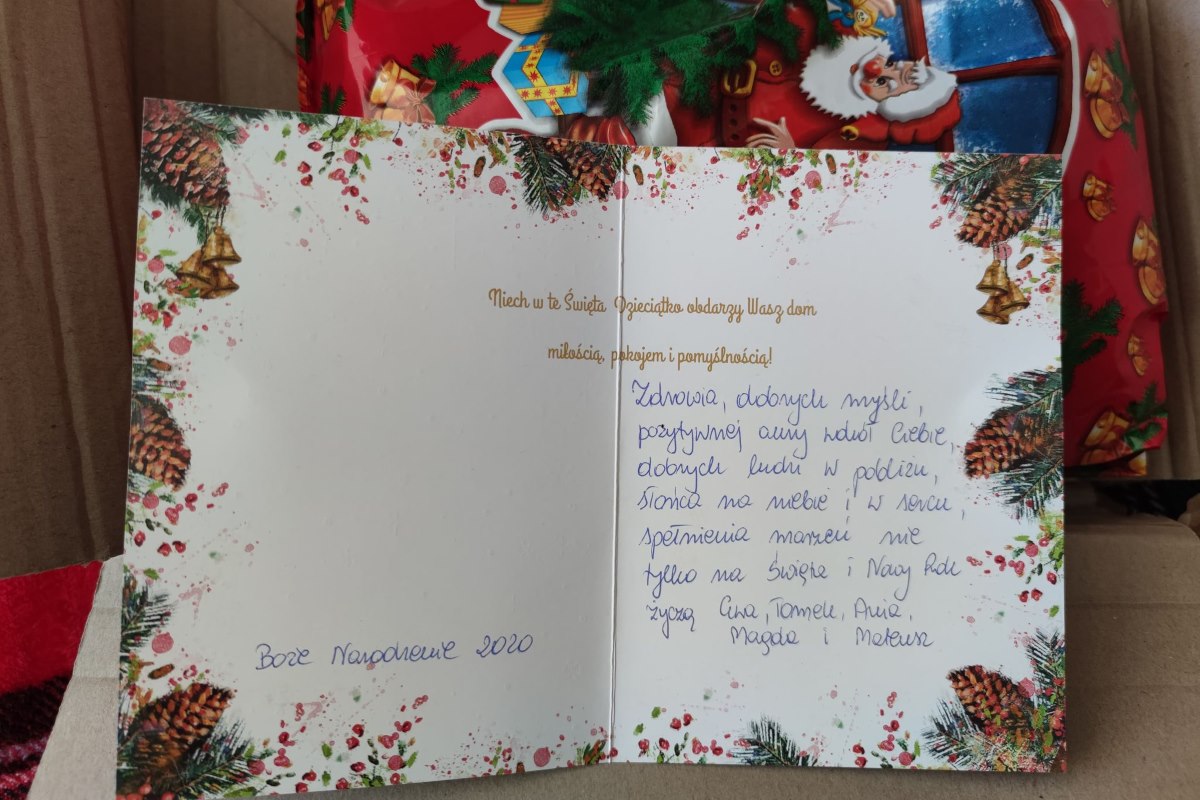 Niech w te Święta Dzieciątko obdarzy Wasz dom
miłością, pokojem i pomyślnością!
Zdrowia, dobrych myśli,
pozytywnej aury wokół Ciebie,
dobrych ludzi w pobliżu,
słońca na niebie i w sercu,
spełnienia marzeń nie
tylko na Święta i Nowy Rok
życzą Ewa, Tomek, Ania,
Magda i Mateusz
Boże Narodzenie 2020